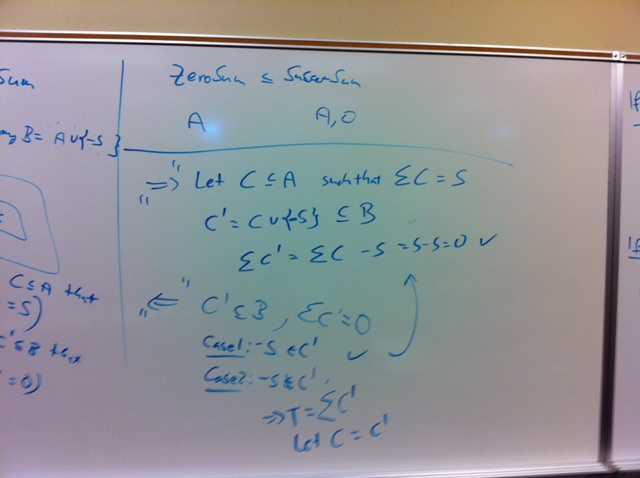 Sum
B = A ∪ {-S}
C ⊆ A that
= S)
C' ⊆ B that
= 0)
ZeroSum ≤ SubsetSum
A A, 0
"⇒" Let C ⊆ A such that ΣC = S
C' = C ∪ {-S} ⊆ B
ΣC' = ΣC - S = S-S=0 ✓
"⇐" C' ⊆ B, ΣC' = 0
Case1: -S ∈ C' ✓
Case2: -S ∉ C'.
⇒ T = ΣC'
Let C = C'
If
If